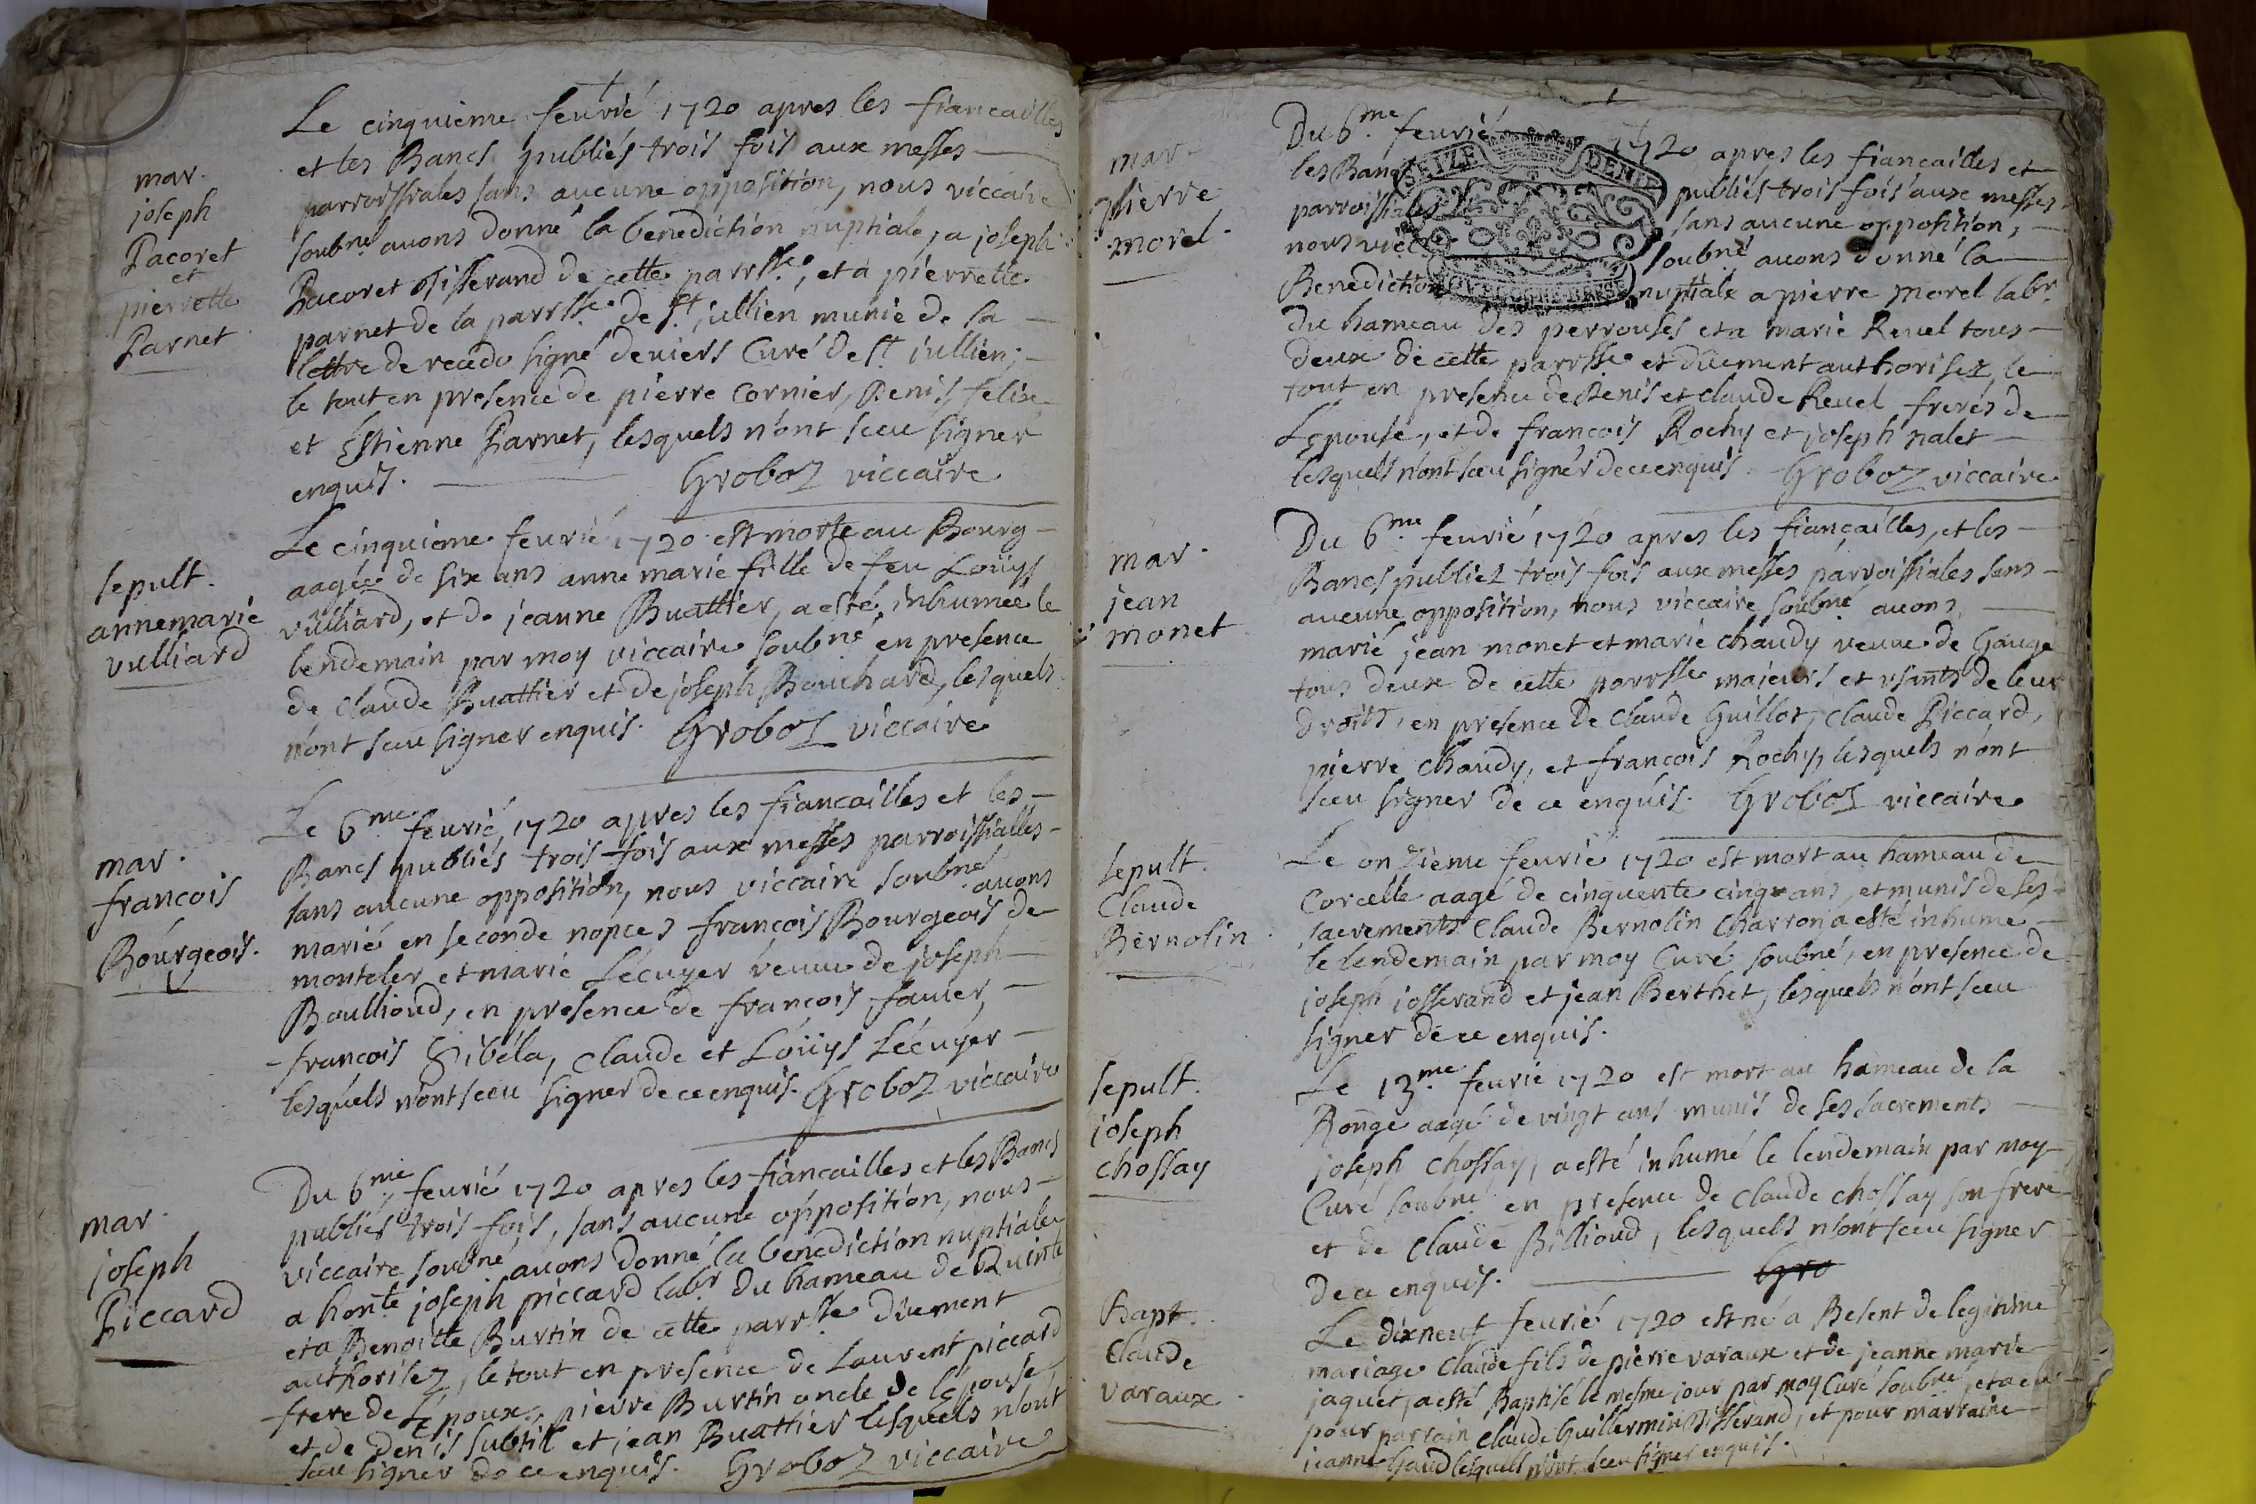 mar.
joseph
Pacoret
et
pierrette
Parnet
Le cinquieme feurié 1720 apres les fiancailles
et les Bancs publiés trois fois aux messes
parroissiales sans aucune opposition, nous viccaire
soubné auons donné la benediction nuptiale, a joseph
Pacoret Tisserand de cette parrsse, et a pierrette
parnet de la parrsse de st jullien munie de la
lettre de recedo signé deuiers Curé de st jullien;
le tout en presence de pierre Cornier, Denis felix
et Estienne Parnet, lesquels n'ont sceu signer
enquis. Groboz viccaire
sepult.
annemarie
vulliard
Le cinquieme feurié 1720 est morte au Bourg
aagée de six ans anne marie fille de feu Loüys
vulliard, et de jeanne Buattier, a esté inhumee le
lendemain par moy viccaire soubné en presence
de Claude Buattier et de joseph Bouchard, lesquels
n'ont sceu signer enquis. Groboz viccaire
mar.
francois
Bourgeois.
Le 6me feurié 1720 apres les fiancailles et les
Bancs publiés trois fois aux messes parroissialles
sans aucune opposition, nous viccaire soubné auons
marié en seconde nopces francois Bourgeois de
monteler et marie Lécuyer veuue de joseph
Boullioud, en presence de francois fauier,
francois Sibéla, Claude et Loüys Lécuyer
lesquels n'ont sceu signer de ce enquis. Groboz viccaire
mar.
joseph
Piccard
Du 6me feurié 1720 apres les fiancailles et les Bancs
publiés trois fois, sans aucune opposition, nous
viccaire soubné auons donné la benediction nuptiale
a honte joseph piccard labr du hameau de Quinte
et a Benoitte Burtin de cette parrsse düement
authorisez, le tout en presence de Laurent piccard
frere de L'époux, pierre Burtin oncle de L'epouse
et de denis subtil et jean Buattier lesquels n'ont
sceu signer de ce enquis. Groboz viccaire
mar.
pierre
morel.
Du 6me feurié 1720 apres les fiancailles et
les Bancs publiés trois fois aux messes
parroissiales sans aucune opposition,
nous vicc soubné auons donné la
Benediction nuptiale a pierre morel labr
du hameau des perrouses et a marie Reuel tous
deux de cette parrsse et düement authorisez, le
tout en presence de Denis et claude Reuel freres de
L'epouse, et de francois Rochy et joseph nalet
lesquels n'ont sceu signer de ce enquis Groboz viccaire
SEIZE DENIE
mar.
jean
monet
Du 6me feurié 1720 apres les fiançailles, et les
Bancs publiez trois fois aux messes parroissiales sans
aucune opposition, nous viccaire soubné auons
marié jean monet et marie chaudy veuue de Gauge
tous deux de cette parrsse majeurs et vsants de leur
droits, en presence de Claude Guillot, Claude Piccard,
pierre chaudy, et francois Rochy, lesquels n'ont
sceu signer de ce enquis. Groboz viccaire
sepult.
Claude
Bernolin
Le onzieme feurié 1720 est mort au hameau de
Corcelle aagé de cinquente cinq ans, et munis de ses
sacrements Claude Bernolin Charron a esté inhumé
le lendemain par moy Curé soubné, en presence de
joseph josserand et jean Berthet, lesquels n'ont sceu
signer de ce enquis.
sepult.
joseph
chossay
Le 13me feurié 1720 est mort au hameau de la
Ronge aagé de vingt ans munis de ses sacrements
joseph chossay, a esté inhumé le lendemain par moy
Curé soubné en presence de Claude chossay son frere
et de Claude Billioud, lesquels n'ont sceu signer
de ce enquis. Gro
Bapt.
Claude
varaux.
Le dixneuf feurié 1720 est né a Besent de legitime
mariage Claude fils de pierre varaux et de jeanne marie
jaquet, a esté Baptisé le mesme jour par moy Curé soubné, et a eu
pour parrain Claude Guillermin Tisserand, et pour marraine
jeanne Gaud lesquels n'ont sceu signer enquis.